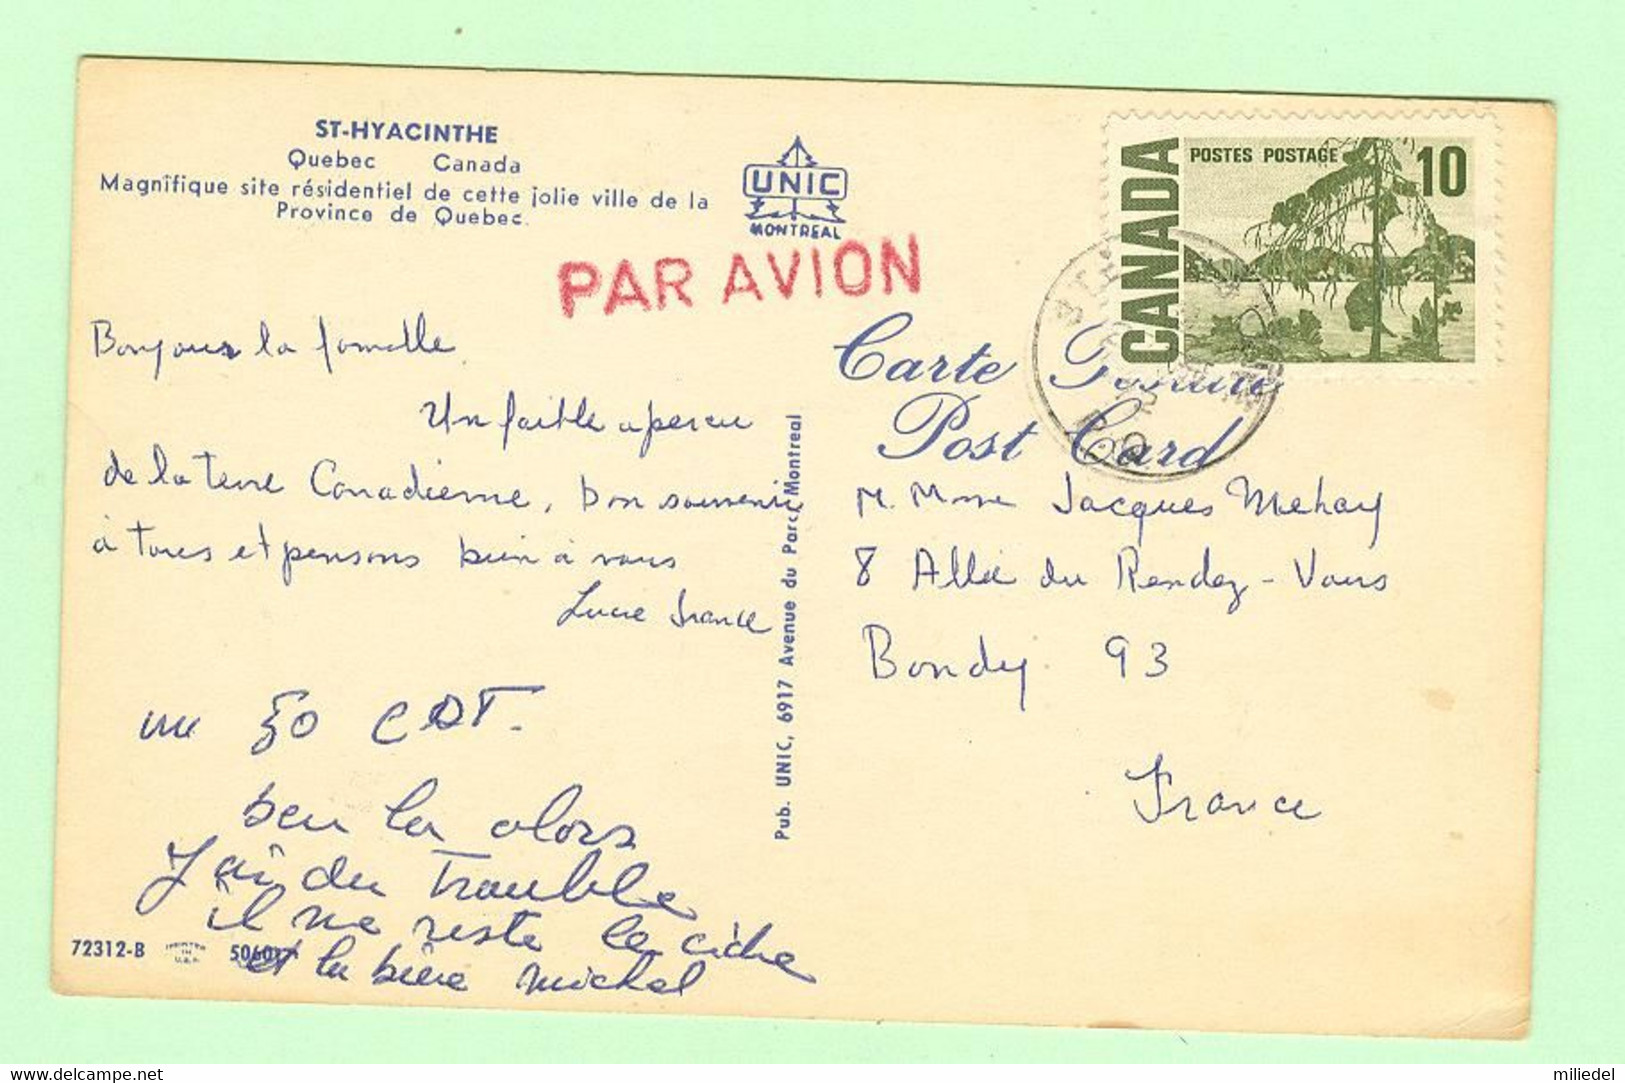 ST-HYACINTHE
Quebec Canada
Magnifique site résidentiel de cette jolie ville de la
Province de Quebec.
UNIC
MONTREAL
PAR AVION
CANADA
POSTES POSTAGE
10
Carte Postale
Post Card
Bonjour la famille
Un faible aperçu
de la terre Canadienne, bon souvenir
à tous et pensons bien à vous
Lucie France
50
ben la alors
J'ai du trouble
il ne reste le cidre
et la bière Michel
Pub. UNIC, 6917 Avenue du Parc, Montreal
M. Mme Jacques Mehay
8 Allée du Rendez-Vous
Bondy 93
France
72312-B
PRINTED
IN
U.S.A.
miliedel
www.delcampe.net